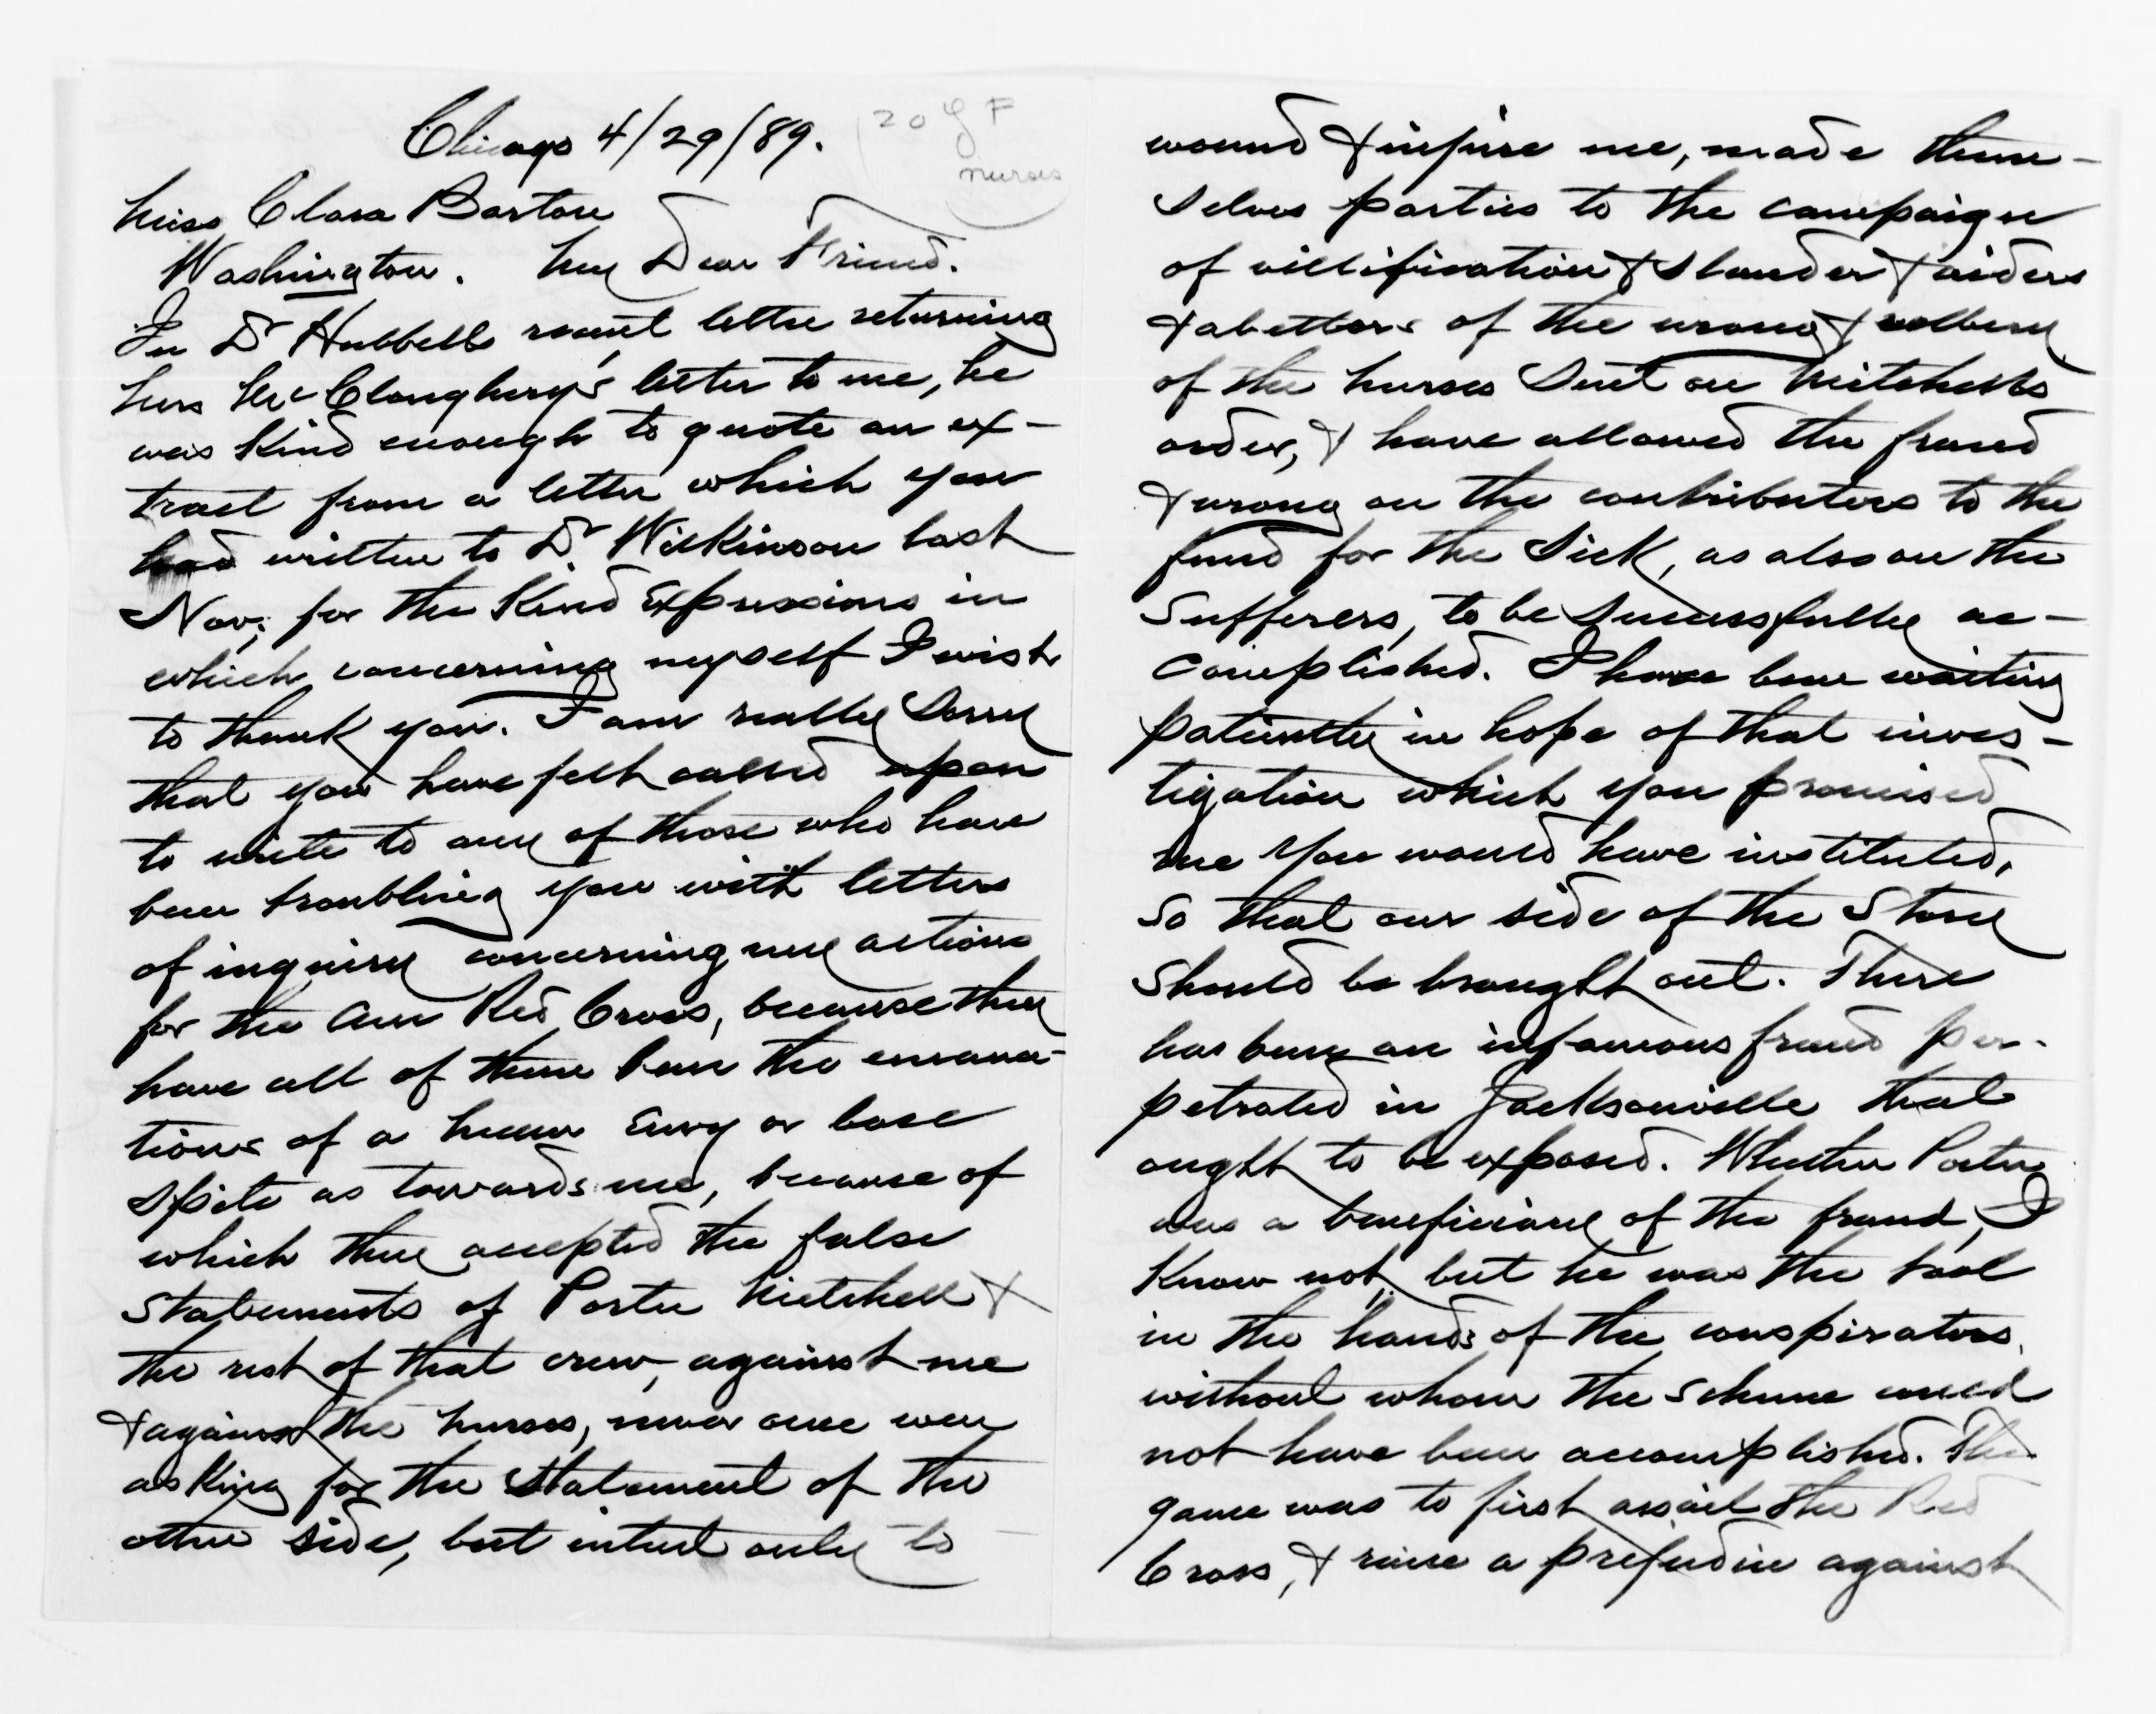 Chicago 4/29/89.
20 Y F
nurses
Miss Clara Barton
Washington. My Dear Friend.
In Dr Hubbells recent letter returning
Mrs McClaugherys letter to me, he
was kind enough to quote an ex-
tract from a letter which you
had written to Dr. Wilkinson last
Nov; for the kind expressions in
which concerning myself I wish
to thank you. I am really sorry
that you have felt called upon
to write to any of those who have
been troubling you with letters
of inquiry concerning my actions
for the Am Red Cross, because they
have all of them been the emana-
tions of a mean envy or base
spite as towards me, because of
which they accepted the false
statements of Porter Mitchell &
the rest of that crew, against me
& against the nurses, never once even
asking for the statement of the
other side, but intent only to
wound & injure me, made them-
selves parties to the campaign
of villification & slander & aiders
& abettors of the wrong & robbery
of the nurses sent on Mitchells
order, & have allowed the fraud
& wrong on the contributors to the
fund for the sick, as also on the
sufferers, to be successfully ac-
complished. I have been waiting
patiently in hope of that inves-
tigation which you promised
me you would have instituted,
so that our side of the story
should be brought out. There
has been an infamous fraud per-
petrated in Jacksonville that
ought to be exposed. Whether Porter
was a beneficiary of the fraud, I
know not, but he was the tool
in the hands of the conspirators,
without whom the scheme could
not have been accomplished. The
game was to first assail the Red
Cross, & raise a prejudice against